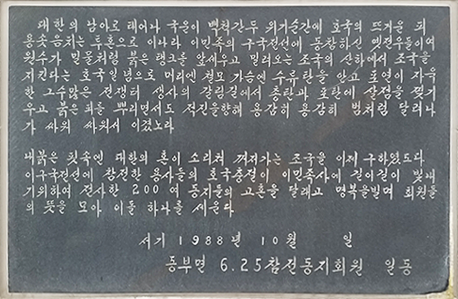 대한의 남아로 태어나 국운이 백척간두 위기순간에 호국의 뜨거운 피
용솟음치는 투혼으로 이나라 이민족의 구국전선에 동참하신 옛전우들이여
원수가 밀물처럼 붉은 탱크를 앞세우고 밀려오는 조국의 산하에서 조국을
지킨다는 호국일념으로 머리엔 철모 가슴엔 수류탄을 안고 포연이 자욱
한 그수많은 전쟁터 생사의 갈림길에서 총탄과 포탄에 살점을 찢기
우고 붉은 피를 뿌리면서도 적진을향해 용감히 용감히 범처럼 달려나
가 싸워 싸워서 이겼노라
내붉은 핏속엔 대한의 혼이 소리쳐 꺼져가는 조국을 이제 구하였도다
이구국전선에 참전한 용사들의 호국충절이 이민족사에 길이길이 빛내
기위하여 전사한 200 여 동지들의 고혼을 달래고 명복을빌며 회원들
의 뜻을 모아 이돌 하나를 세운다
서기 1988년 10월 일
동부면 6.25참전동지회원 일동